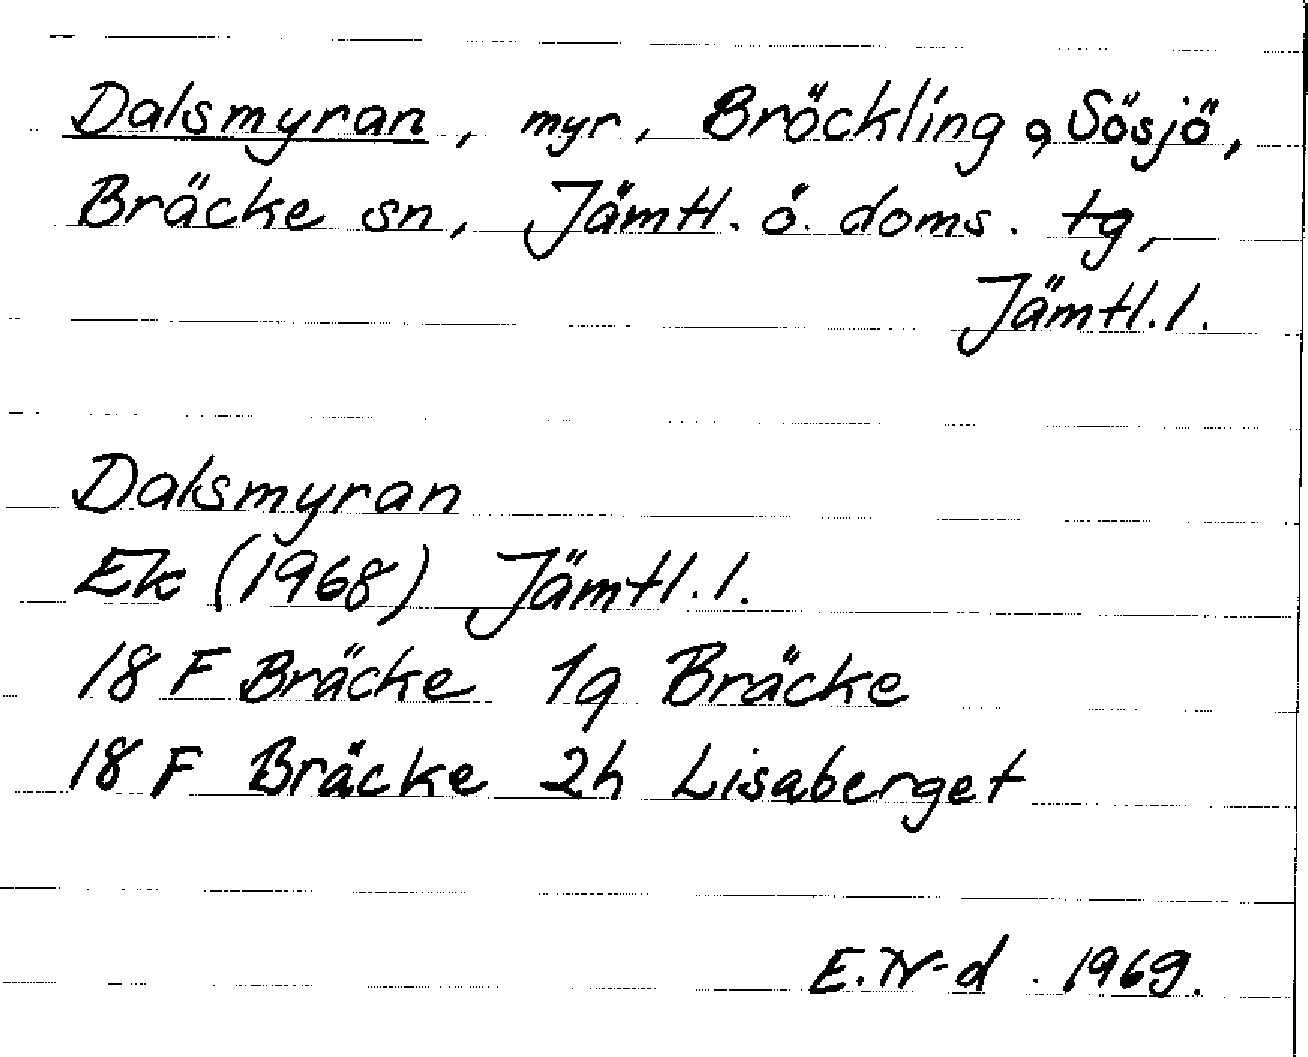 Dalsmyran, myr, Bröckling o, Sösjö,
Bräcke sn, Jämtl. ö. doms. tg,
Jämtl. l.
Dalsmyran
Ek (1968) Jämtl. l.
18 F Bräcke 1g Bräcke
18 F Bräcke 2h Lisaberget
E. N-d. 1969.